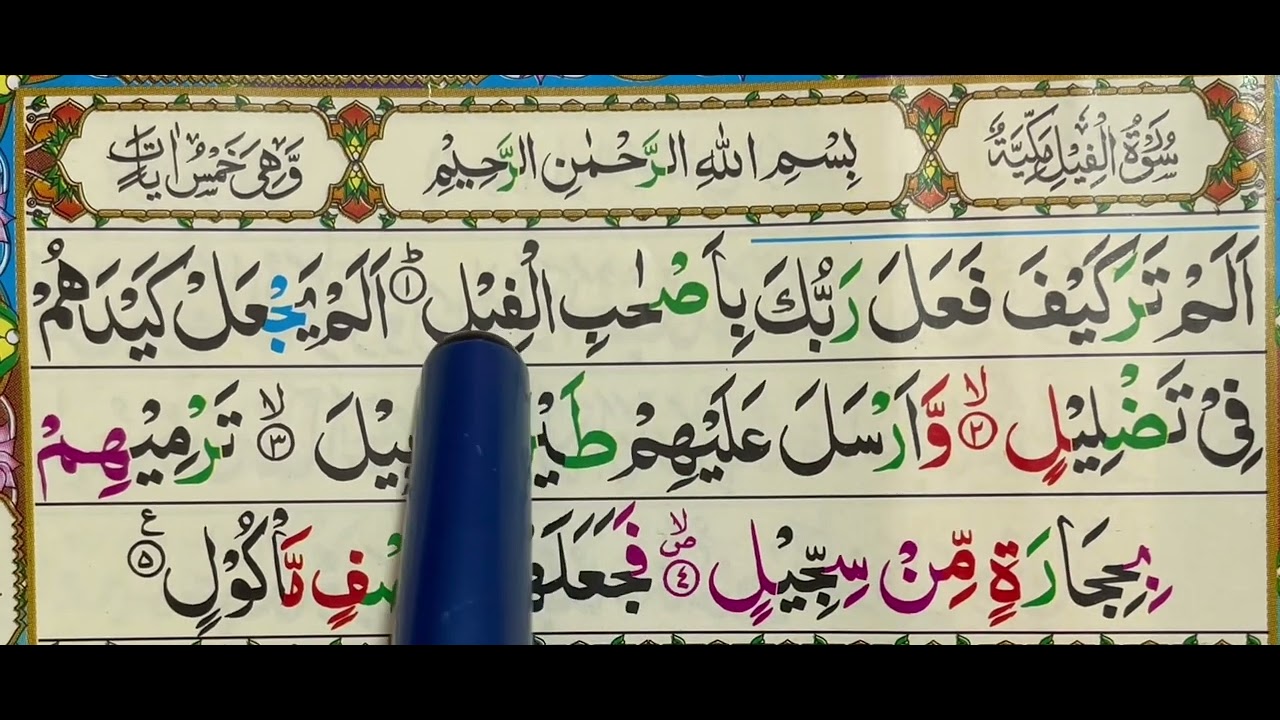 سُوْرَةُ الْفِيْلِ مَكِّيَّةٌ
بِسْمِ اللّٰهِ الرَّحْمٰنِ الرَّحِيْمِ
وَّهِىَ خَمْسُ اٰيَاتٍ
اَلَمْ تَرَ كَيْفَ فَعَلَ رَبُّكَ بِاَصْحٰبِ الْفِيْلِ ؕ ۱ اَلَمْ يَجْعَلْ كَيْدَهُمْ
فِىْ تَضْلِيْلٍ ۙ ۲ وَّاَرْسَلَ عَلَيْهِمْ ۙ ۳ تَرْمِيْهِمْ
بِحِجَارَةٍ مِّنْ سِجِّيْلٍ ۙ ص ۴ مَّاْكُوْلٍ ع ۵